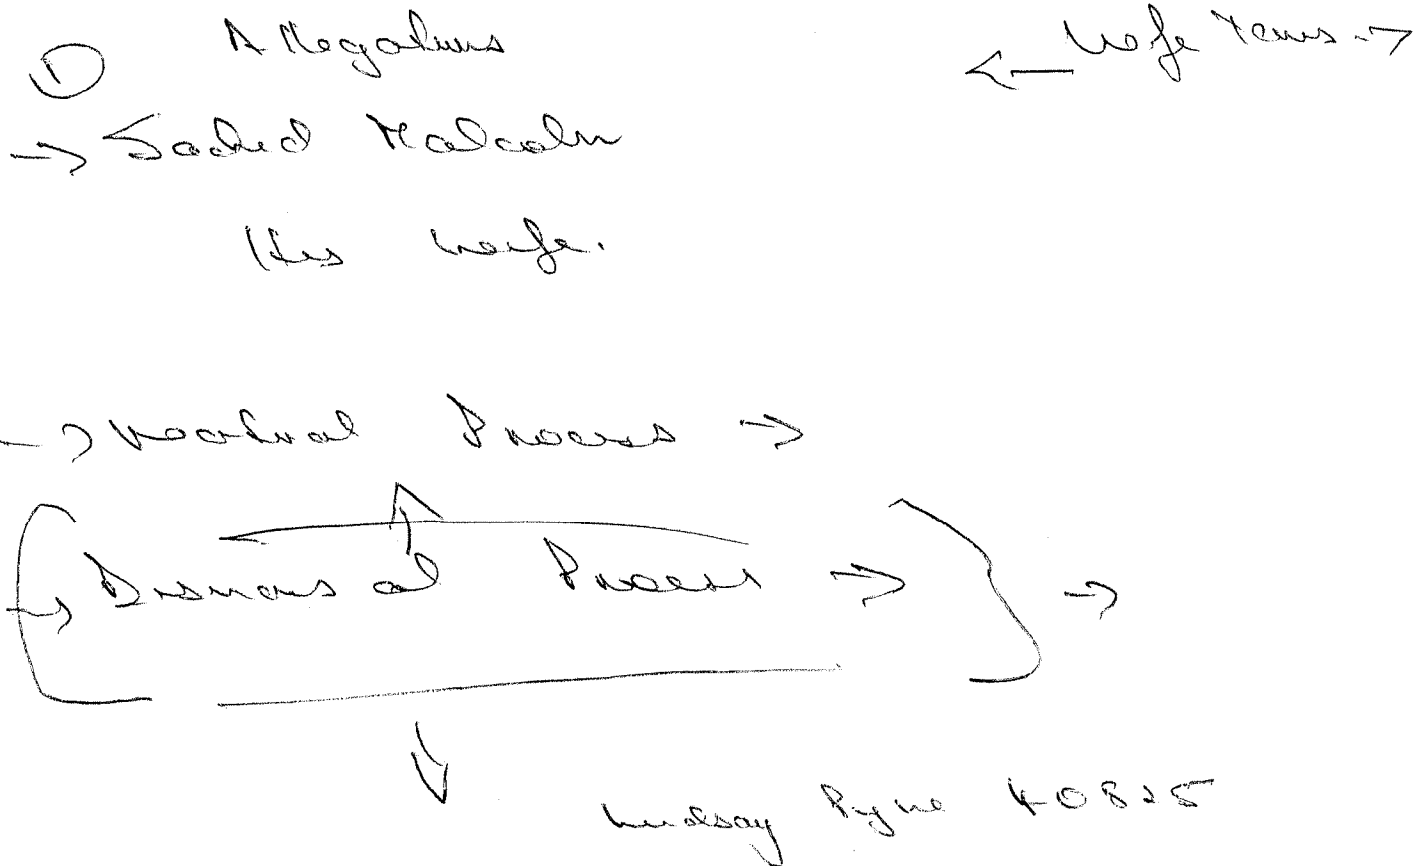 ① Allegations
← Wife Terms →
→ Sacked Malcolm
His wife.
→ neutral Process →
→ Dismissal Process → →
Lindsay Pyne 40825